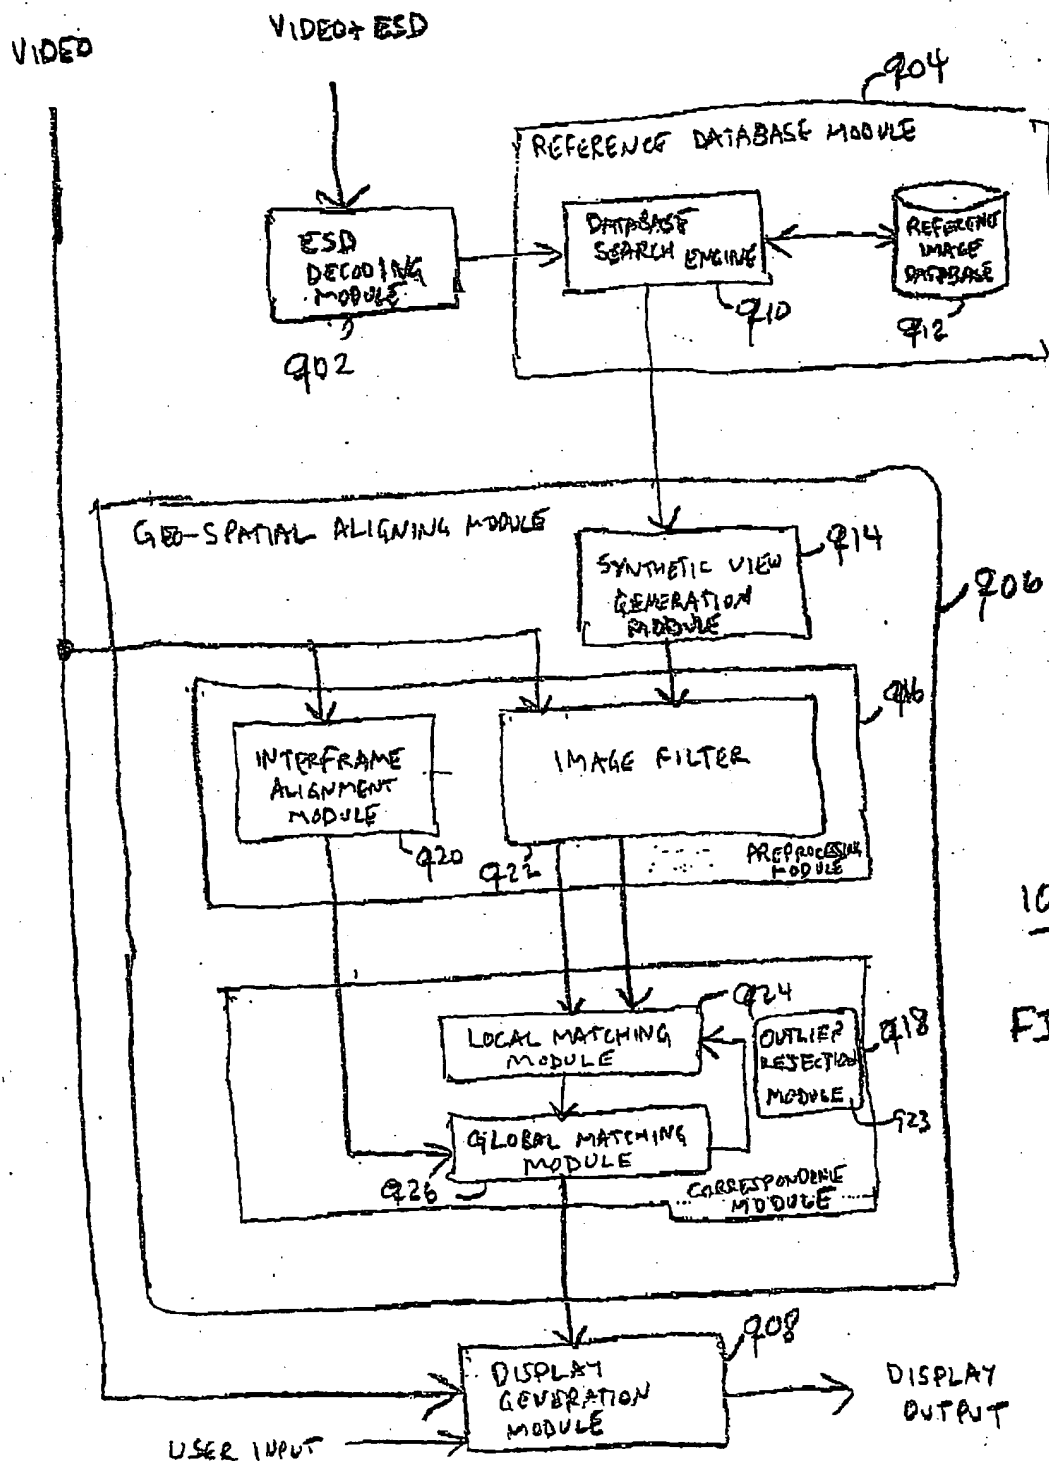 VIDEO
VIDEO+ESD
904
REFERENCE DATABASE MODULE
ESD
DECODING
MODULE
902
DATABASE
SEARCH ENGINE
910
IMAGE
DATABASE
912
GEO-SPATIAL ALIGNING MODULE
SYNTHETIC VIEW
GENERATION
MODULE
914
906
916
INTERFRAME
ALIGNMENT
MODULE
920
IMAGE FILTER
922
PREPROCESSING
MODULE
10
FI
LOCAL MATCHING
MODULE
924
OUTLIER
REJECTION
MODULE
918
923
GLOBAL MATCHING
MODULE
926
CORRESPONDENCE
MODULE
908
DISPLAY
GENERATION
MODULE
DISPLAY
OUTPUT
USER INPUT